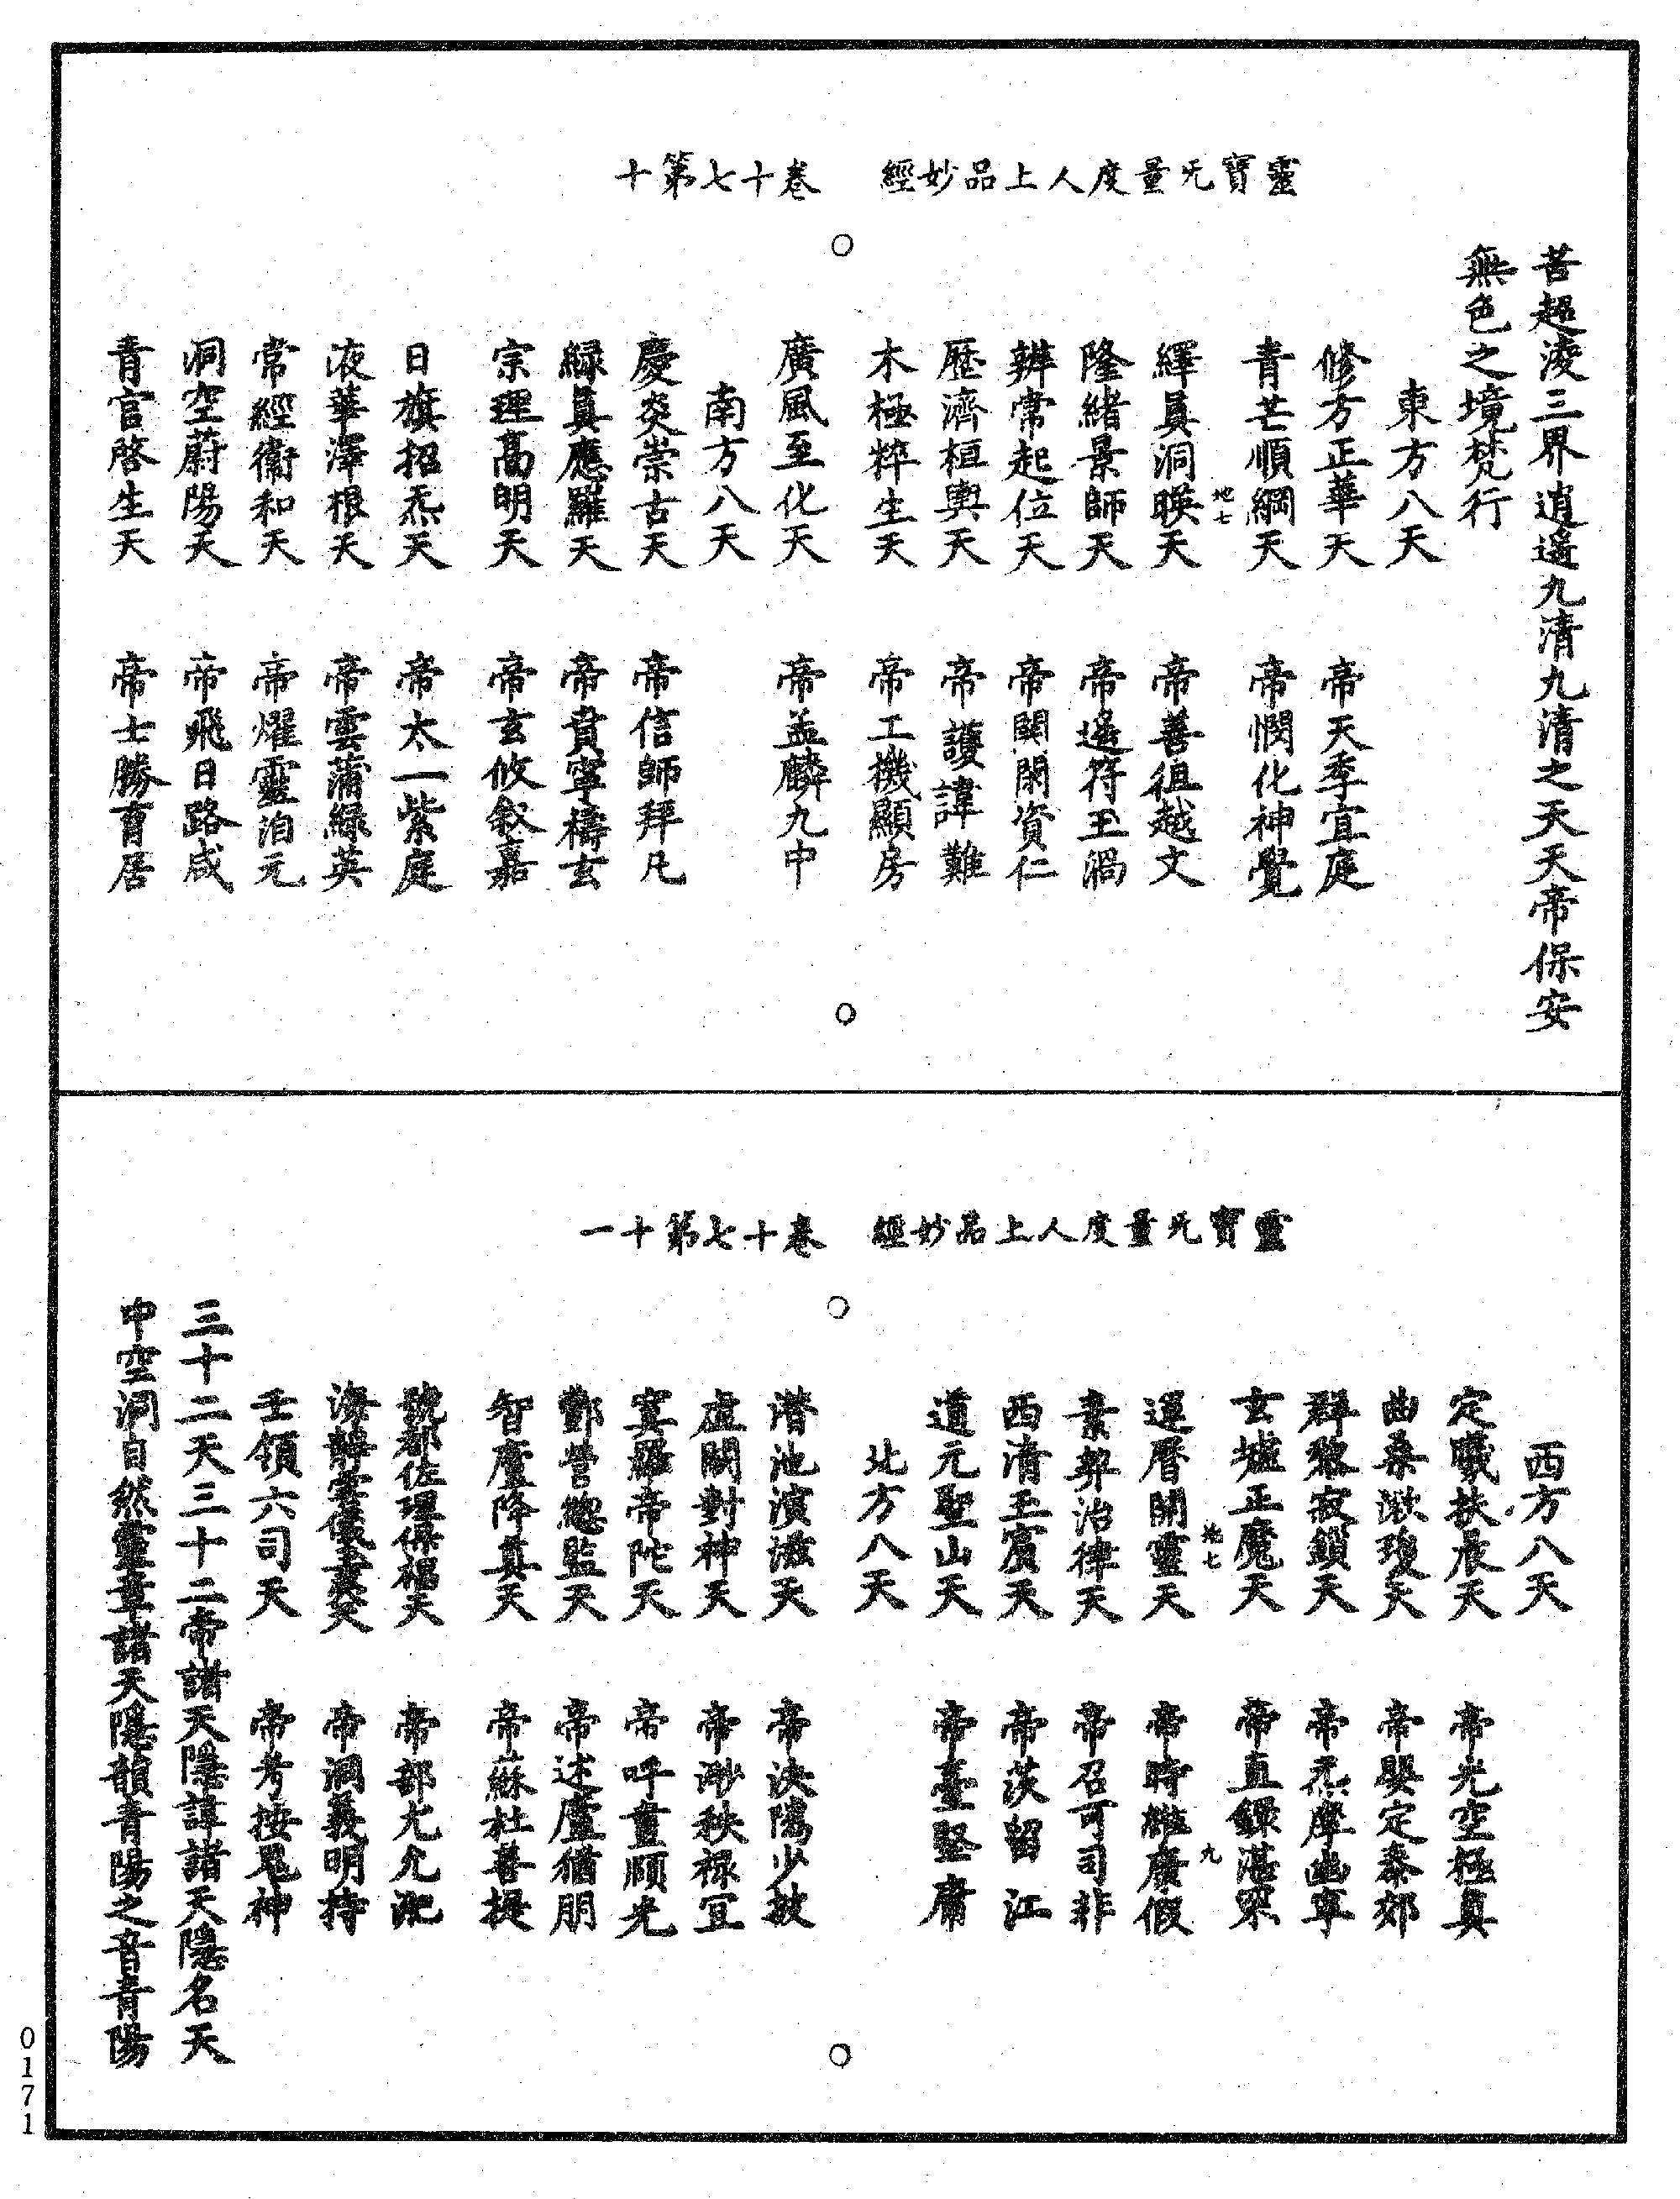 靈寶旡量度人上品妙經　卷十七第十
苦超凌三界逍遙九清九清之天天帝保安
無色之境梵行
東方八天
修方正華天　帝天季宜庭
青芒順綱天　帝憫化神覺
地七
繹真洞暎天　帝善徂越文
隆緒景師天　帝遙符玉
辨常起位天　帝關閑資仁
歷濟桓輿天　帝護諱難
木極粹生天　帝工機顯房
廣風至化天　帝益麟九中
南方八天
慶炎崇古天　帝信師拜凡
綠真應羅天　帝賁寧檮玄
宗理高明天　帝玄攸敘嘉
日旗招炁天　帝太一紫庭
液華澤根天　帝雲蒲綠英
常經衛和天　帝燿靈洎元
洞空蔚陽天　帝飛日路咸
青官啓生天　帝士勝育居
靈寶旡量度人上品妙經　卷十七第十一
西方八天
定曦扶晨天　帝光空極真
曲桑湫瓊天　帝嬰定泰郊
群黎寂鎖天　帝炁摩幽寧
玄墟正魔天　帝直錄湛眾
地七　九
運曆開靈天　帝時繼廣假
素犂治律天　帝召可司非
西清玉賓天　帝茨留江
道元聖山天　帝臺堅庸
北方八天
潛池演滋天　帝決陽少披
虛關對神天　帝渺秩祿宜
寞羅帝陀天　帝呼重順光
酆營總監天　帝述盧猶朋
智廬降真天　帝蘇杜善提
號都佐理保福天　帝部尢允
海靜雲懷天　帝洞義明持
壬領六司天　帝考按鬼神
三十二天三十二帝諸天隱諱諸天隱名天
中空洞自然靈章諸天隱韻青陽之音青陽
0171